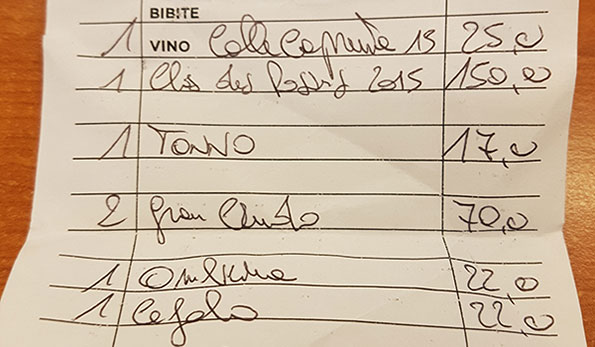 BIBITE
1 VINO Colle Capretta 15 25,0
1 Clos des 2015 150,0
1 TONNO 17,0
2 Gran Crudo 70,0
1 Ombrina 22,0
1 Cefalo 22,0